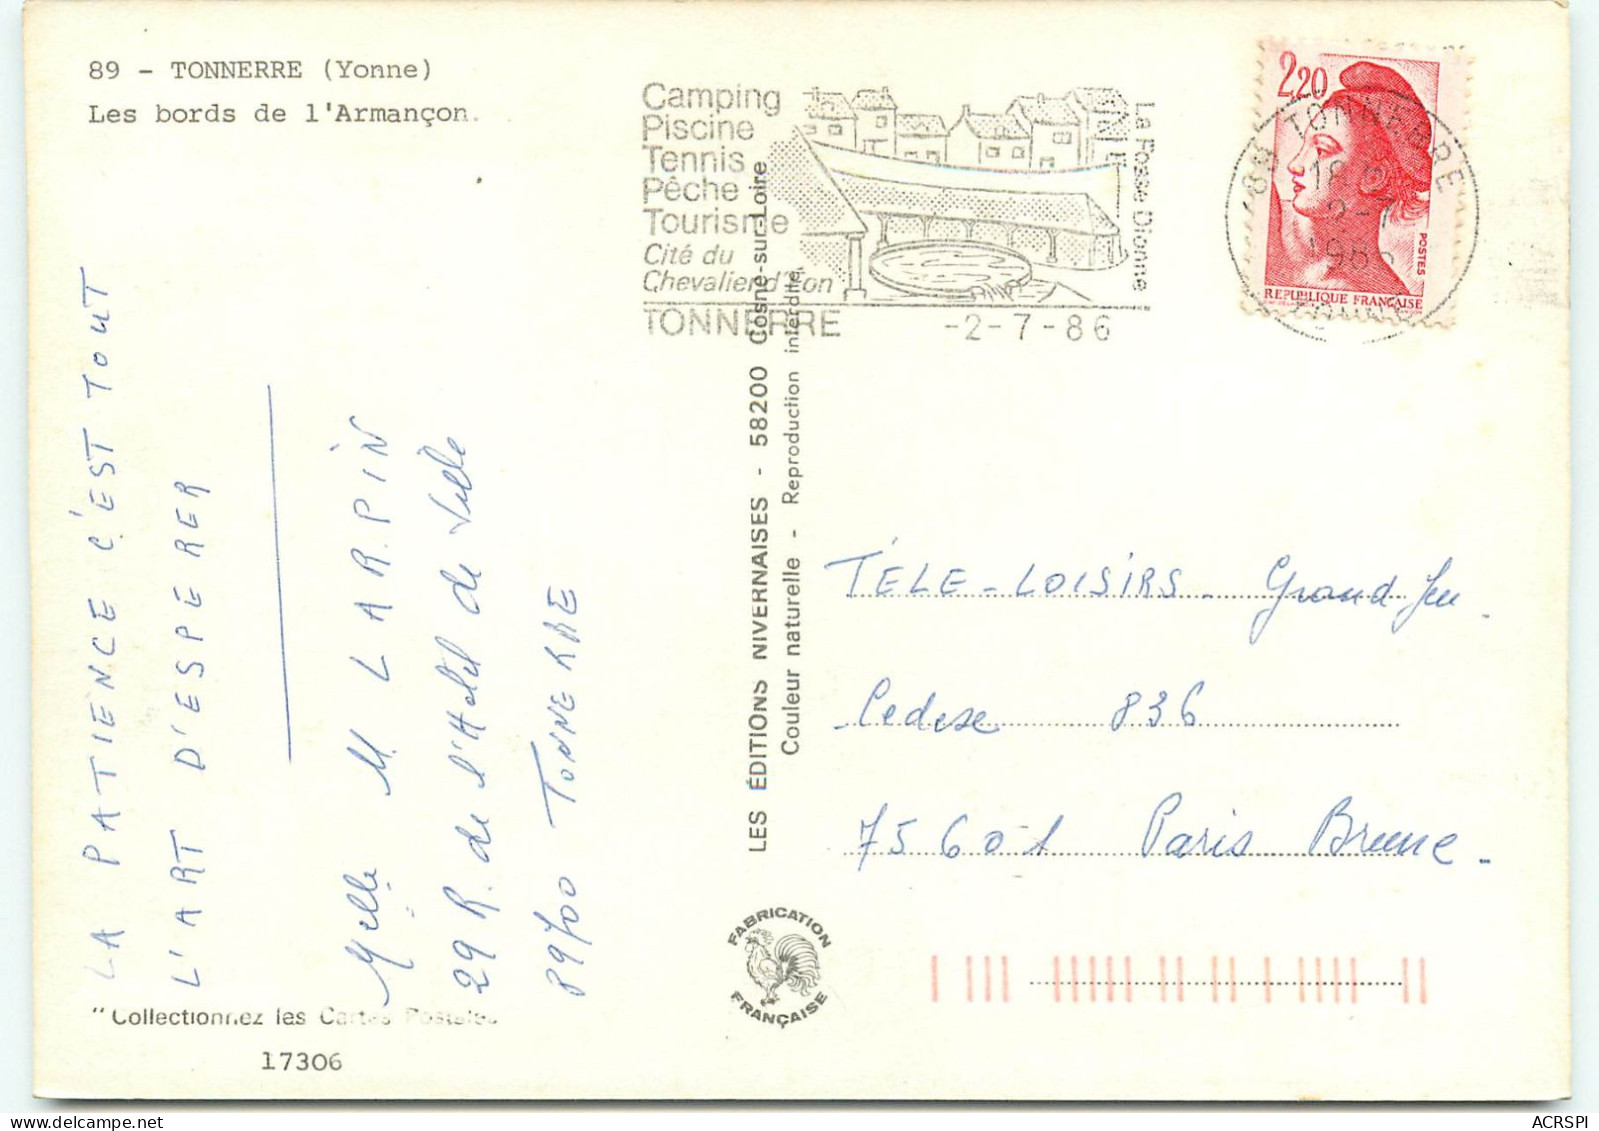 89 - TONNERRE (Yonne)
Les bords de l'Armançon.
Camping
Piscine
Tennis
Pêche
Tourisme
Cité du
Chevalier d'Eon
TONNERRE
-2-7-86
La Fosse Dionne
2,20
POSTES
REPUBLIQUE FRANÇAISE
89 TONNERRE
2-7
1986
YONNE
LA PATIENCE C'EST TOUT
L'ART D'ESPERER
Melle M. LARPIN
29 R. de l'Hotel de Ville
89700 TONNERRE
LES ÉDITIONS NIVERNAISES - 58200 Cosne-sur-Loire
Couleur naturelle - Reproduction interdite
TÉLÉ-LOISIRS - Grand Jeu.
Cedex 836
75601 Paris Brune.
FABRICATION
FRANÇAISE
"Collectionnez les Cartes Postales
17306
ACRSPI